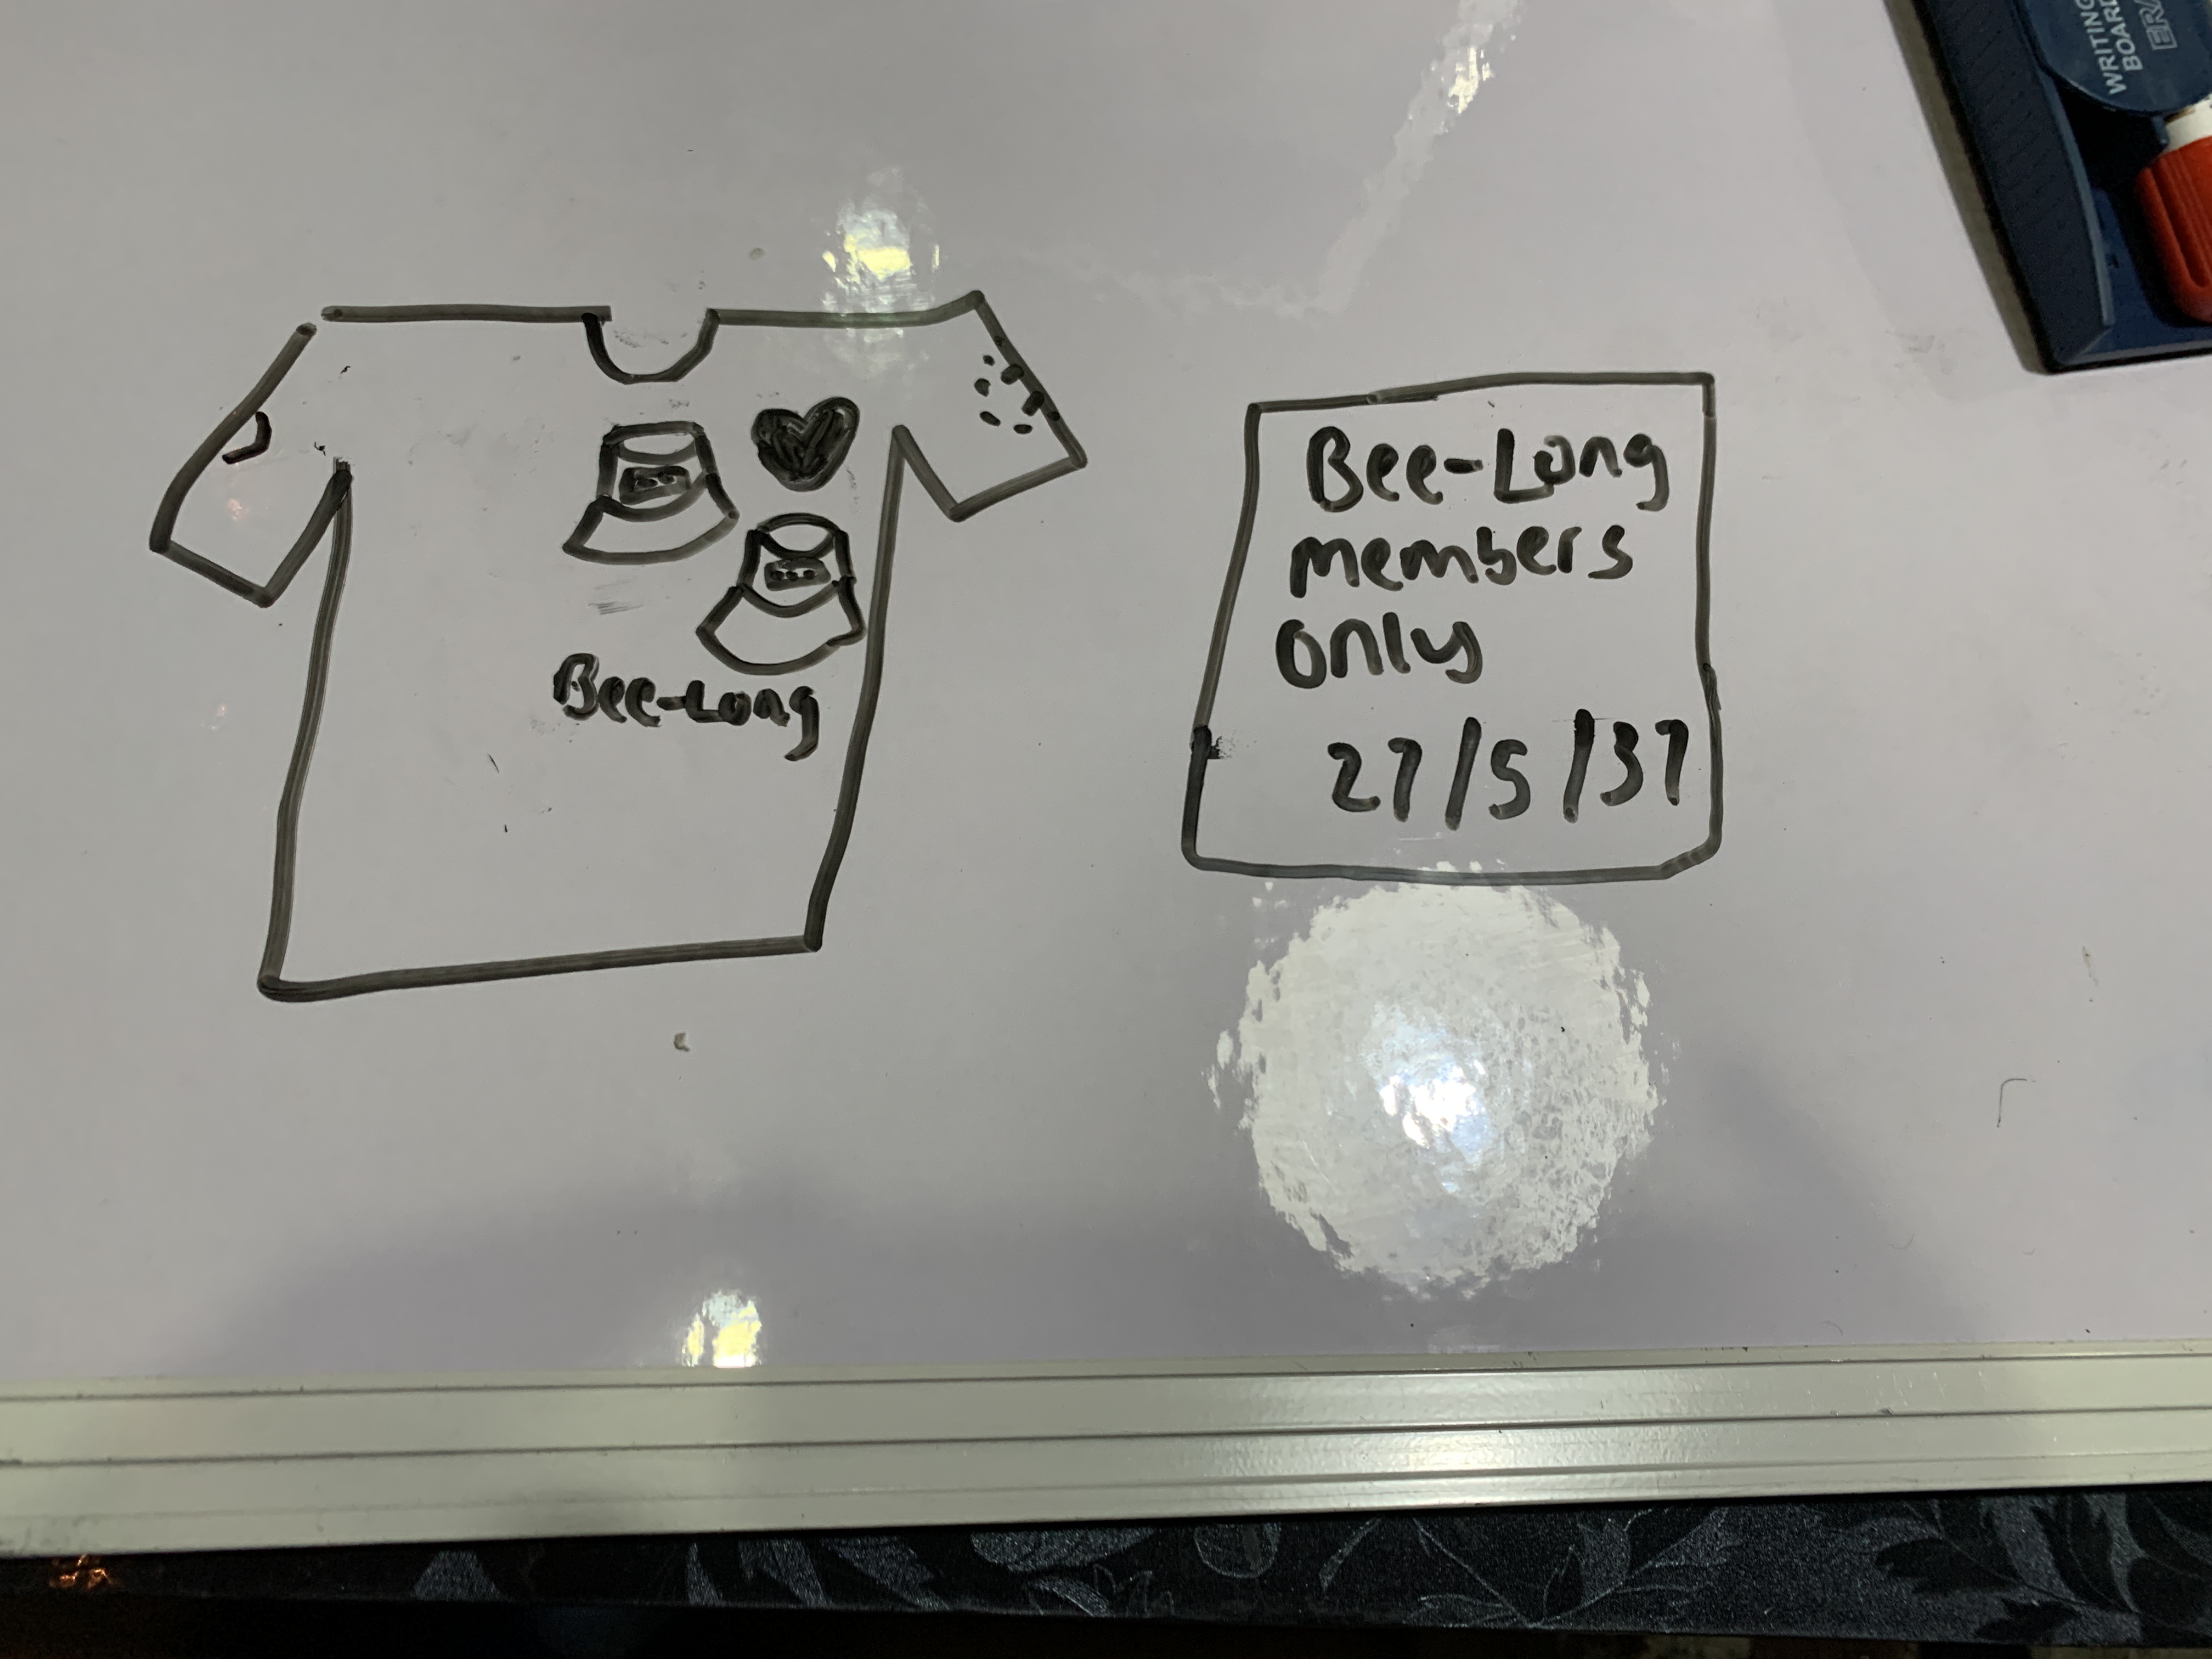 Bee-Long
Bee-Long
members
only
27/5/137
WRITING
BOARD